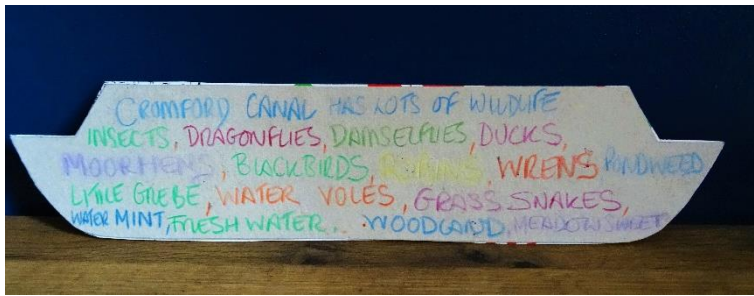 CROMFORD CANAL HAS LOTS OF WILDLIFE
INSECTS, DRAGONFLIES, DAMSELFLIES, DUCKS,
MOORHENS, BLACKBIRDS, ROBINS, WRENS PONDWEED
LITTLE GREBE, WATER VOLES, GRASS SNAKES,
WATER MINT, FRESH WATER, WOODLAND, MEADOWSWEET